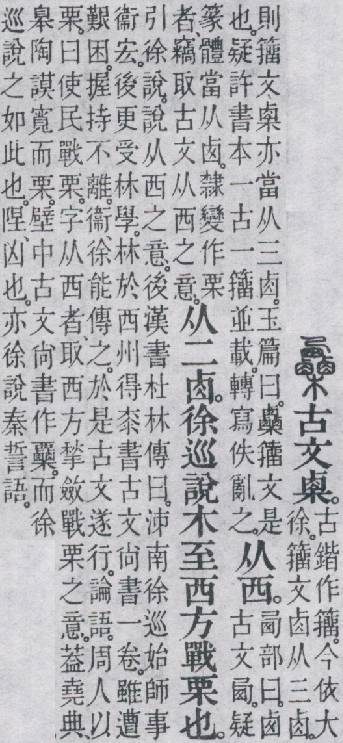 古文㮚。古鍇作籒。今依大
徐。籒文卤从三卤。
則籒文㮚亦當从三卤。玉篇曰。𣡷籒文是
也。疑許書本一古一籒並載。轉寫佚亂之。
从西。卥部曰。卤
古文卥。疑
篆體當从卤。隸變作栗
者。竊取古文从西之意。
从二卤。徐巡說木至西方戰栗也。
引徐說。說从西之意。後漢書杜林傳曰。沛南徐巡始師事
衞宏。後更受林學。林於西州得桼書古文尚書一卷。雖遭
艱困。握持不離。衞徐能傳之。於是古文遂行。論語。周人以
栗。曰使民戰栗。字从西者。取西方揫斂戰栗之意。葢堯典
臯陶謨寬而栗。壁中古文尚書作𣡷。而徐
巡說之如此也。陧凶也。亦徐說秦誓語。